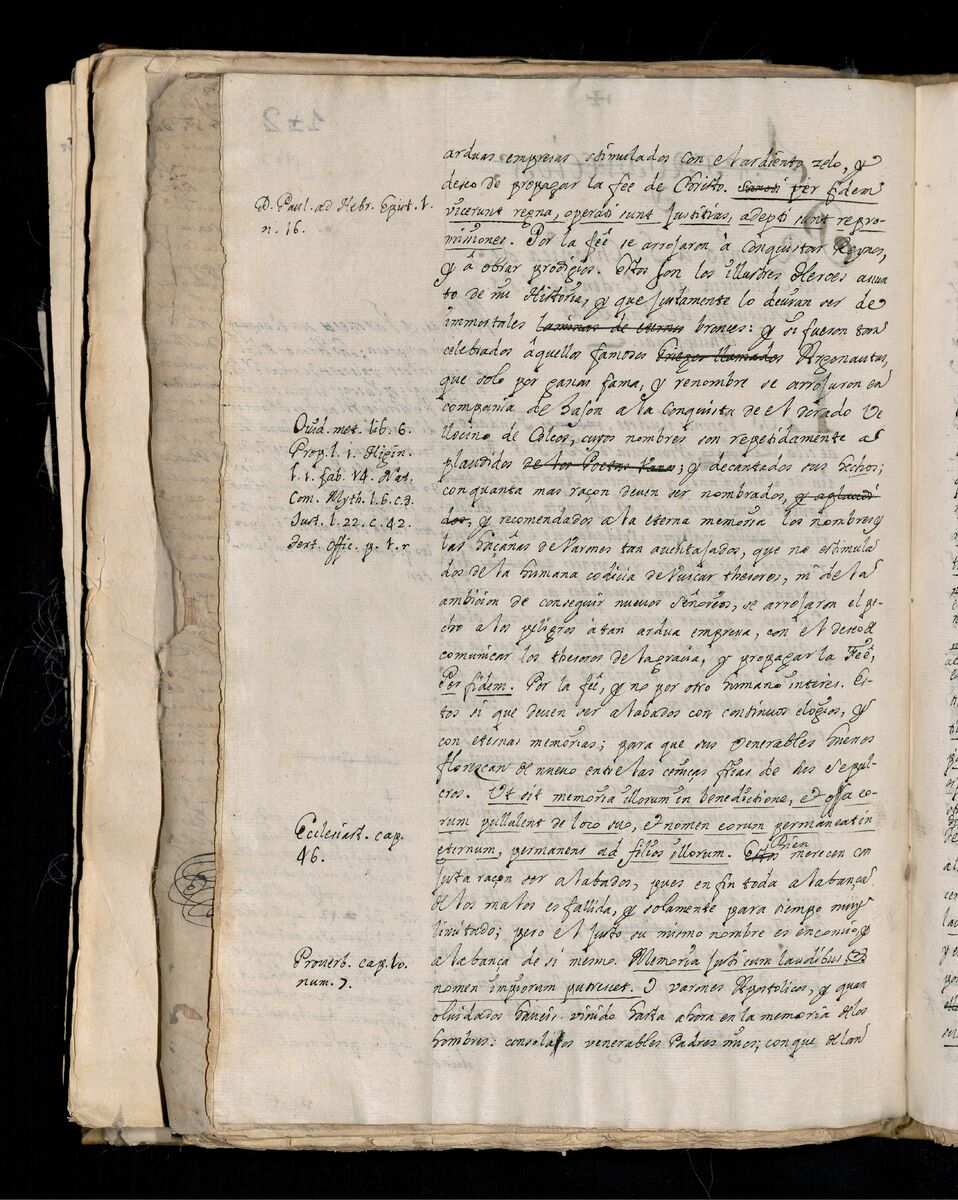 arduas empresas stimulados con el ardiente zelo, y
deseo de propagar la fee de Christo. Sancti per fidem
D. Paul. ad Hebr. Epist. 1.
n. 16.
vicerunt regna, operati sunt justitias, adepti sunt repro-
missiones. Por la feê se arrojaron â conquistar Reynos,
y â obrar prodigios. Estos son los illustres Heroes asun
to de mi Historia, y que justamente lo devran ser de
immortales laminas de eternos bronces: y si fueron tan
celebrados âquellos famosos Griegos llamados Argonautas,
que solo por ganar fama, y renombre se arrojaron en
compania de Jason a la conquista de el dorado Ve
llocino de Colcos, cuyos nombres son repetidamente a
Ovid. met. lib. 6.
Prop. l. 1. Higin.
l. 1. fab. 14. Nat.
Com. Myth. l. 6. c. 8.
Just. l. 22. c. 42.
dert. offic. p. 1. r
plaudidos de los Poetas; y decantados sus hechos;
con quanta mas raçon deven ser nombrados, y aplaudi
dos, y recomendados a la eterna memoria los nombres y
las haçañas de Varones tan aventajados, que no estimula
dos de la humana codicia de buscar thesoros, ni de la
ambicion de conseguir nuevos Señoreos, se arrojaron el pe-
cho a los peligros â tan ardua empresa, con el deseo d
comunicar los thesoros de la gracia, y propagar la Feê,
Per fidem. Por la feê, y no por otro humano interes. Es-
tos si que deven ser alabados con continuos elogios, y
con eternas memorias; para que sus venerables huesos
florezcan de nuevo entre las ceniças frias de sus Sepul-
cros. Ut sit memoria illorum in benedictione, et ossa eo-
Ecclesiast. cap.
46.
rum pullulent de loco suo, et nomen eorum permaneat in
eternum, permanens ad filios illorum. Estos Bien merecen con
justa raçon ser alabados, pues en fin toda alabança
de los malos es fallida, y solamente para tiempo muy
limitado; pero el justo su mismo nombre es encomio, y
Proverb. cap. 10.
num. 7.
alabança de si mismo. Memoria justi cum laudibus, et
nomen impiorum putrescet. O varones Apostolicos, y quan
olvidados haveis vivido hasta ahora en la memoria de los
hombres: consolaos venerables Padres mios; con que de lan